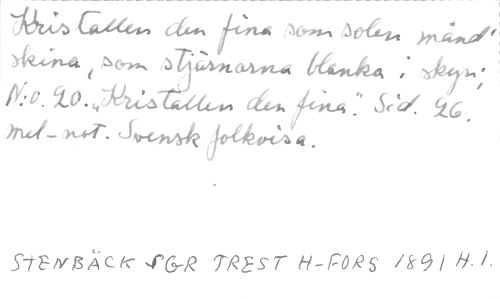 Kristallen den fina som solen månd'
skina, som stjärnorna blanka i skyn;
N:o. 20. "Kristallen den fina". Sid. 26.
mel-not. Svensk folkvisa.
STENBÄCK SGR TREST H-FORS 1891 H.1.